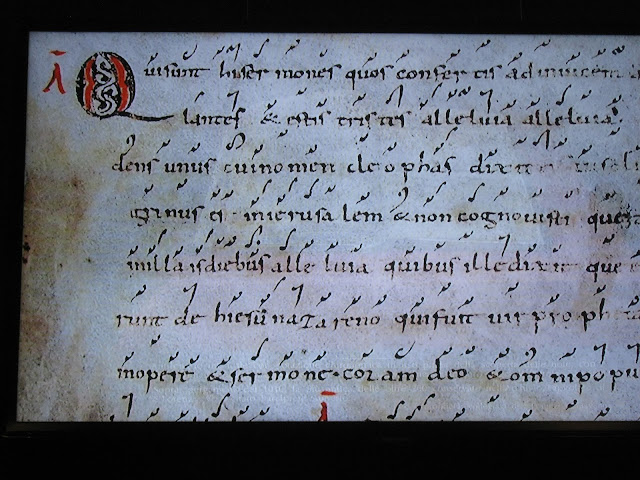 Ā Qui sunt hii ser mones quos confer tis ad invicem
lantes & estis tristes alleluia alleluia
dens unus cui nomen cleophas dixit
grinus es in ierusa lem & non cognovisti que
in illa is diebus alle luia quibus ille dixit que
runt de hiesu naza reno qui fuit vir pro pheta
in opere & ser mone coram deo & omni popu
Ā